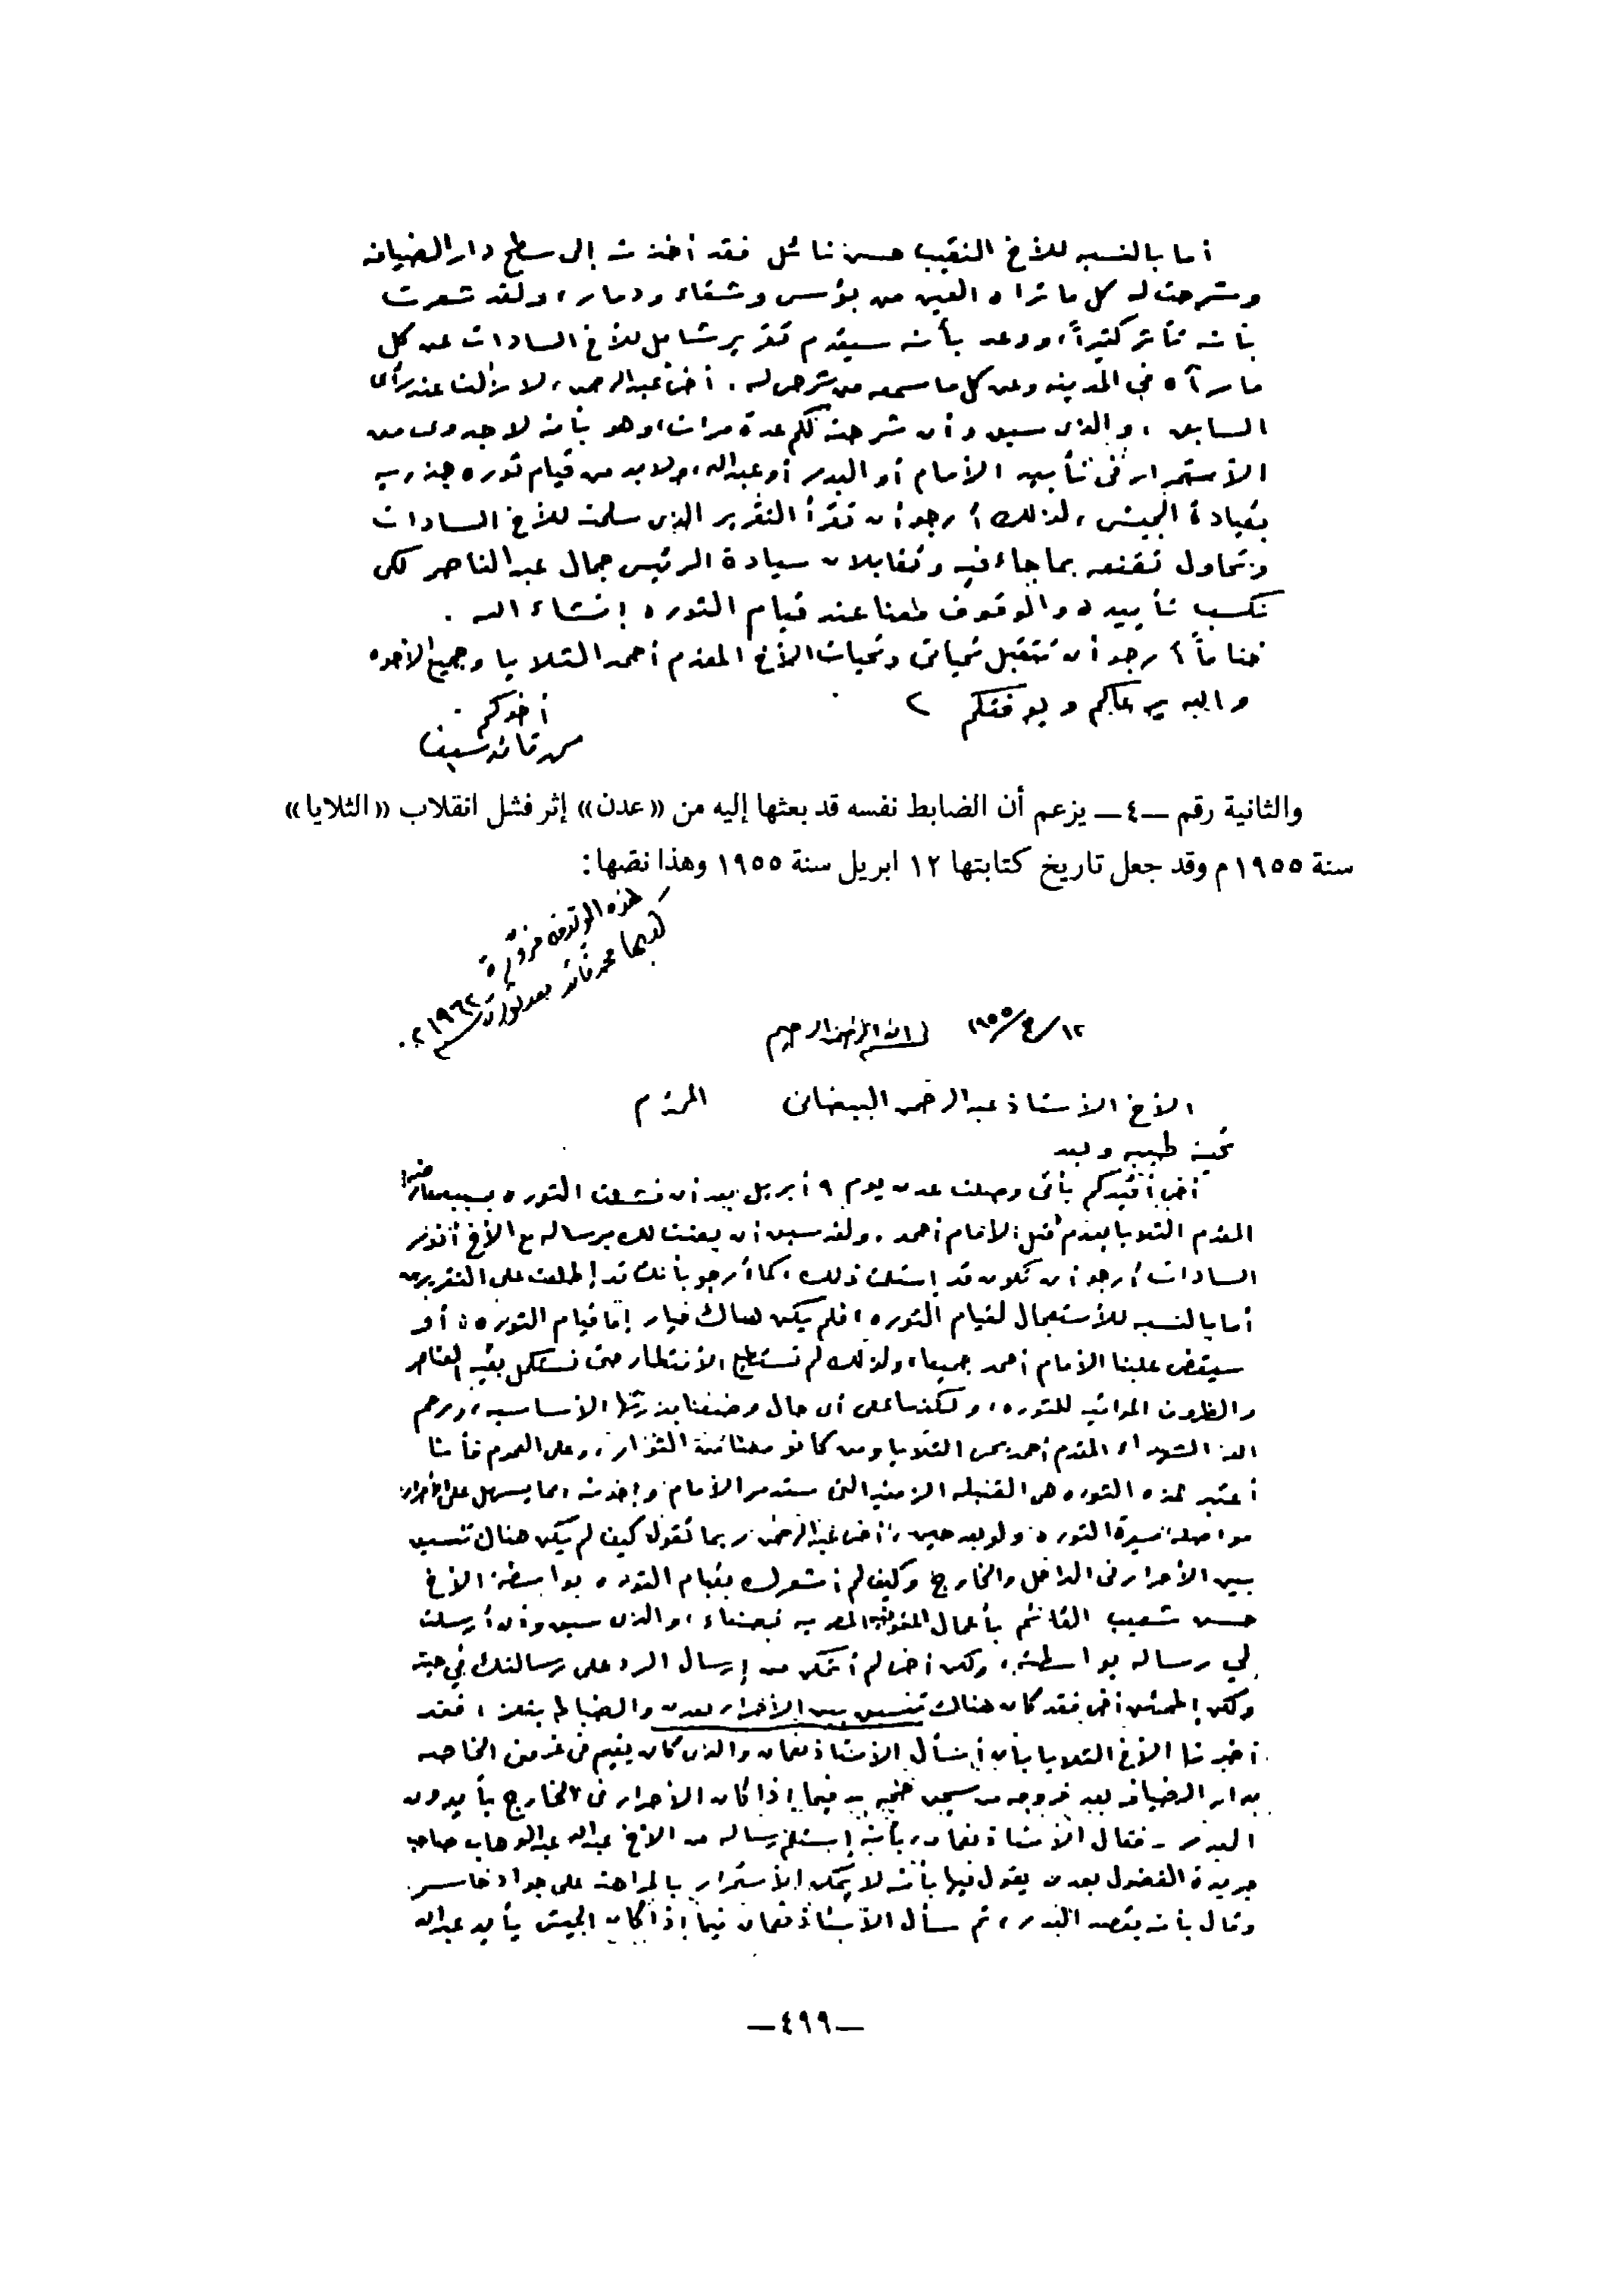 أما بالنسبه للأخ النقيب حسن نائل فقد أخذته إلى سطح دار الضيافه
وشرحت له كل ما تراه العين من بؤس وشقاء ودمار، ولقد شعرت
بأنه تأثر كثيراً، ووعد بأنه سيقدم تقرير شامل للأخ السادات عن كل
ما رآه في المدينه وعن كل ما سمعه من شرحي له. أخي عبدالرحمن، لا زلت عند رأي
السابق، والذي سبق وأن شرحته لكم عدة مرات، وهو بأنه لا جدوى من
الأستمرار في تأييد الأمام أو البدر أو عبدالله، ولابد من قيام ثوره جذريه
بقيادة الجيش، لذلك أرجو أن تقرأ التقرير الذي سلمته للأخ السادات
وتحاول تقنعه بما جاء فيه وتقابلان سيادة الرئيس جمال عبدالناصر لكي
نكسب تأييده والوقوف معنا عند قيام الثوره إنشاء الله.
ختاماً أرجو أن تتقبل تحياتي وتحيات الأخ المقدم أحمد الثلايا وجميع الأخوه
والله يرعاكم ويوفقكم
أخوكم
محمد قائد سيف
والثانية رقم —٤— يزعم أن الضابط نفسه قد بعثها إليه من «عدن» إثر فشل انقلاب «الثلايا»
سنة ١٩٥٥م وقد جعل تاريخ كتابتها ١٢ ابريل سنة ١٩٥٥ وهذا نصها:
هذه الوثيقة مزورة
كتبها محمد قائد بعد ثورة سبتمبر ١٩٦٢م.
١٢/٤/١٩٥٥ بسم الله الرحمن الرحيم
الأخ الأستاذ عبدالرحمن البيضاني المحترم
تحيه طيبه وبعد
أخي أفيدكم بأني وصلت عدن يوم ٩ أبريل بعد أن فشلت الثوره بسبب معارضة
المقدم الثلايا بعدم قتل الأمام أحمد. ولقد سبق أن بعثت لك برساله مع الأخ أنور
السادات أرجو أن تكون قد إستلمت ذلك، كما أرجو بأنك قد إطلعت على التقريرين
أما بالنسبه للأستعجال لقيام الثوره، فلم يكن هناك خيار إما قيام الثوره، أو
سيقضي علينا الأمام أحمد جميعا، ولذلك لم نستطيع الأنتظار حتى نستكمل بقية العناصر
والظروف المواتيه للثوره، ولكننا على أي حال وضعنا بذرتها الأساسيه، ورحم
الله الشهداء المقدم أحمد يحي الثلايا ومن كانو معنا من الثوار، وعلى العموم فأننا
أعتبر هذه الثوره هي القنبله الزمنيه التي ستدمر الأمام وإخوته، مما يسهل على الأحرار
مواصلة مسيرة الثوره ولو بعد حين، أخي عبدالرحمن ربما تقول كيف لم يكن هناك تنسيق
بين الأحرار في الداخل والخارج وكيف لم أشعرك بقيام الثوره بواسطة الأخ
حسن شعيب القائم بأعمال المفوضيه المصريه بصنعاء، والذي سبق وأن أرسلت
لي رساله بواسطته، ولكن أخي لم أتمكن من إرسال الرد على رسالتك في حينه
ولكن إطمئن أخي فقد كان هناك تنسيق بين الأحرار بعدن والضباط بتعز، فقد
أخبرنا الأخ الثلايا بأن أسأل الأستاذ نعمان والذي كان يقيم في غرفتي الخاصه
بدار الضيافه بعد خروجه من سجن حجه - فيما إذا كان الأحرار في الخارج يأيدون
البدر - فقال الأستاذ نعمان، بأنه إستلم رساله من الأخ عبدالله عبدالوهاب صاحب
جريدة الفضول بعدن يقول فيها بأنه لا يمكن الأستمرار بالمراهنه على جواد خاسر
وقال بأنه يقصد البدر، ثم سأل الأستاذ نعمان فيما إذا كان الجيش يأيد عبدالله
—٤٩٩—